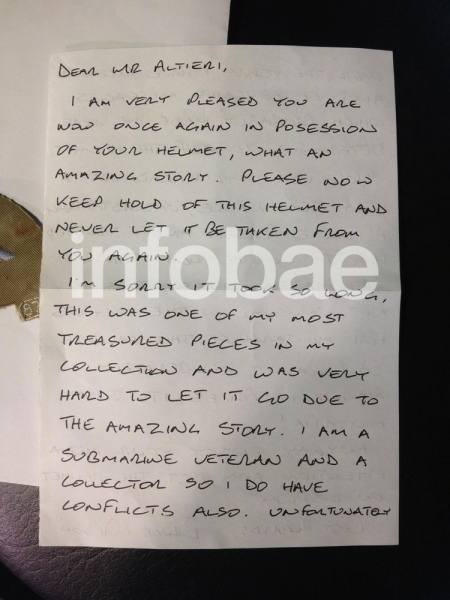 DEAR MR ALTIERI,
I AM VERY PLEASED YOU ARE
NOW ONCE AGAIN IN POSESSION
OF YOUR HELMET, WHAT AN
AMAZING STORY. PLEASE NOW
KEEP HOLD OF THIS HELMET AND
NEVER LET IT BE TAKEN FROM
YOU AGAIN.
infobae
I'M SORRY IT TOOK SO LONG,
THIS WAS ONE OF MY MOST
TREASURED PIECES IN MY
COLLECTION AND WAS VERY
HARD TO LET IT GO DUE TO
THE AMAZING STORY. I AM A
SUBMARINE VETERAN AND A
COLLECTOR SO I DO HAVE
CONFLICTS ALSO. UNFORTUNATELY